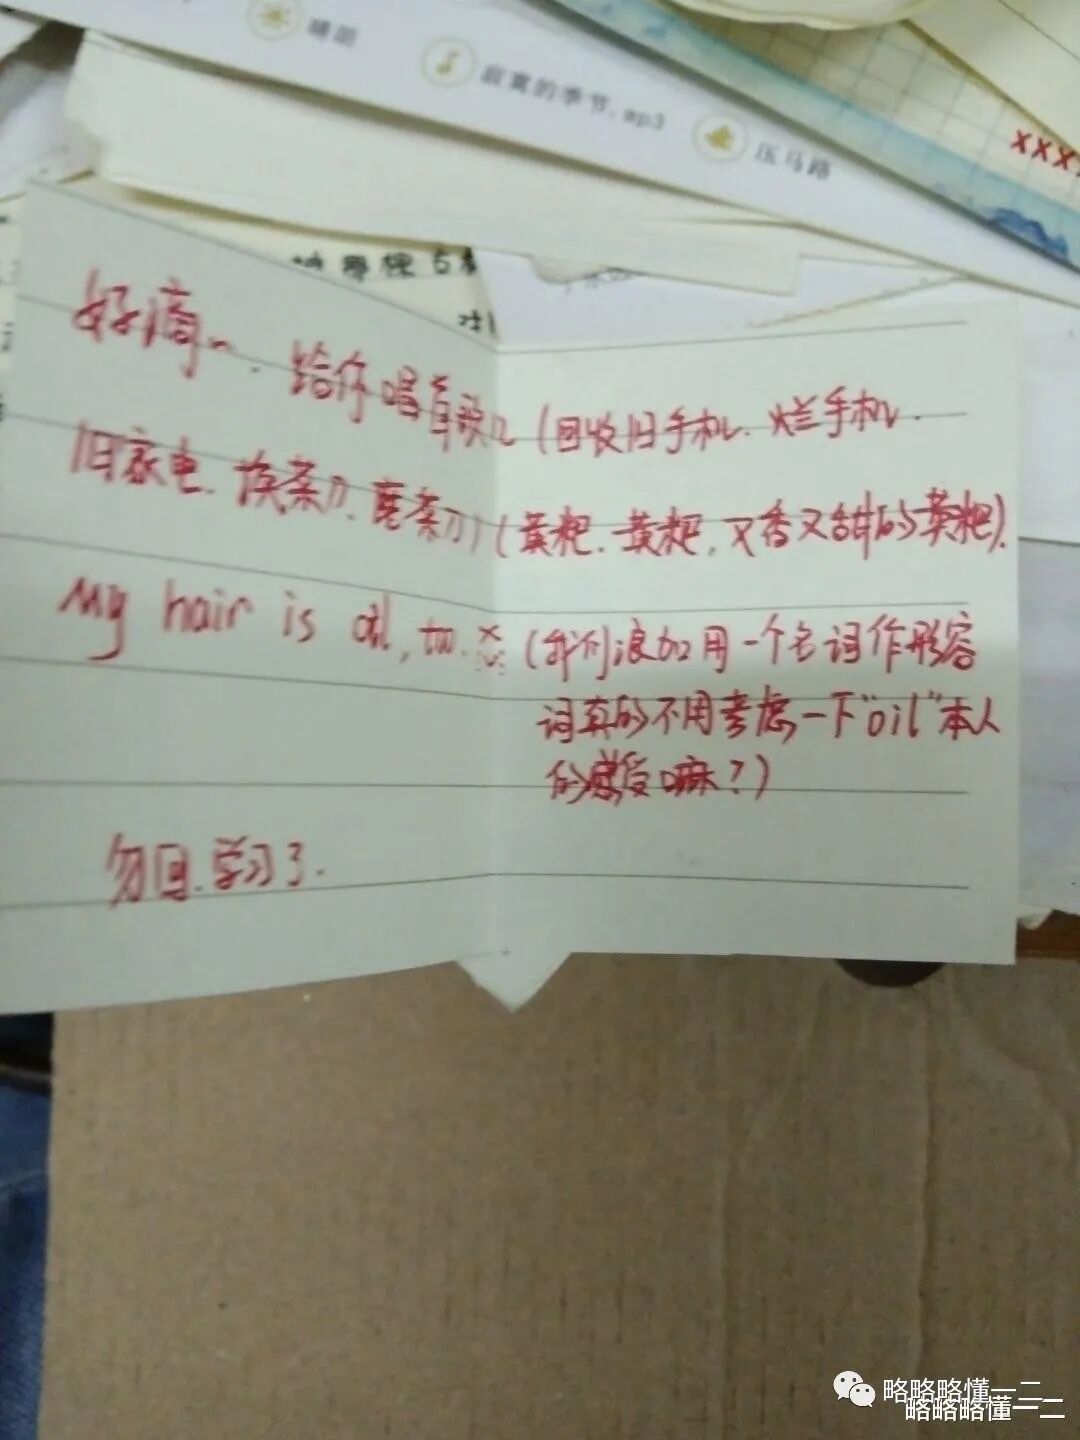 晴朗
寂寞的季节.mp3
压马路
xxx
好滴~. 给你唱首歌几(回收旧手机.烂手机.
旧家电.换菜刀.磨菜刀)(黄粑.黄粑,又香又甜的黄粑).
My hair is oil, too.(我们浪加用一个名词作形容
词真的不用考虑一下"oil"本人
的感受嘛?)
勿回.学习了.
略略略懂一二
略略略懂一二